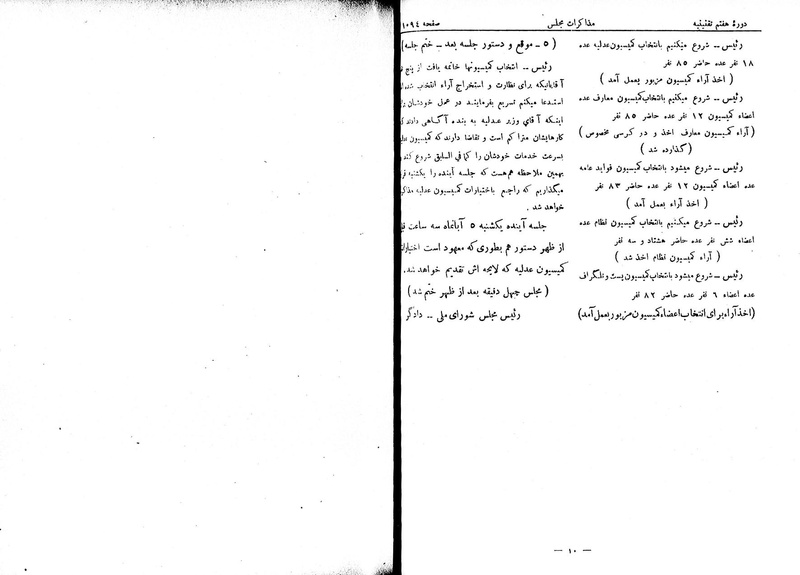 دورهٔ هفتم تقنینیه
مذاکرات مجلس
صفحه ۱۰۹٤
رئیس -- شروع میکنیم بانتخاب کمیسیون عدلیه عده
۱۸ نفر عده حاضر ۸۵ نفر
( اخذ آراء کمیسیون مزبور بعمل آمد )
رئیس -- شروع میکنیم بانتخاب کمیسیون معارف عده
اعضاء کمیسیون ۱۲ نفر عده حاضر ۸۵ نفر
( آراء کمیسیون معارف اخذ و در کرسی مخصوص
گذارده شد )
رئیس -- شروع میشود بانتخاب کمیسیون فواید عامه
عده اعضاء کمیسیون ۱۲ نفر عده حاضر ۸۳ نفر
( اخذ آراء بعمل آمد )
رئیس -- شروع میکنیم بانتخاب کمیسیون نظام عده
اعضاء شش نفر عده حاضر هشتاد و سه نفر
( آراء کمیسیون نظام اخذ شد )
رئیس -- شروع میشود بانتخاب کمیسیون پست و تلگراف
عده اعضاء ٦ نفر عده حاضر ۸۲ نفر
(اخذ آراء برای انتخاب اعضاء کمیسیون مزبور بعمل آمد)
( ۵ -- موقع و دستور جلسه بعد -- ختم جلسه )
رئیس -- انتخاب کمیسیونها خاتمه یافت از پنج
آقایانیکه برای نظارت و استخراج آراء انتخاب شده
استدعا میکنم تسریع بفرمایند در عمل خودشان
اینکه آقای وزیر عدلیه به بنده آگاهی دادند که
کارهایشان متراکم است و تقاضا دارند که کمیسیون
بسرعت خدمات خودشان را کما فی السابق شروع کند
بهمین ملاحظه هم هست که جلسه آینده را یکشنبه
میگذاریم که راجع باختیارات کمیسیون عدلیه
خواهد شد .
جلسه آینده یکشنبه ۵ آبانماه سه ساعت
از ظهر دستور هم بطوری که معهود است
کمیسیون عدلیه که لایحه اش تقدیم خواهد شد.
( مجلس چهل دقیقه بعد از ظهر ختم شد )
رئیس مجلس شورای ملی -- دادگر
— ۱۰ —